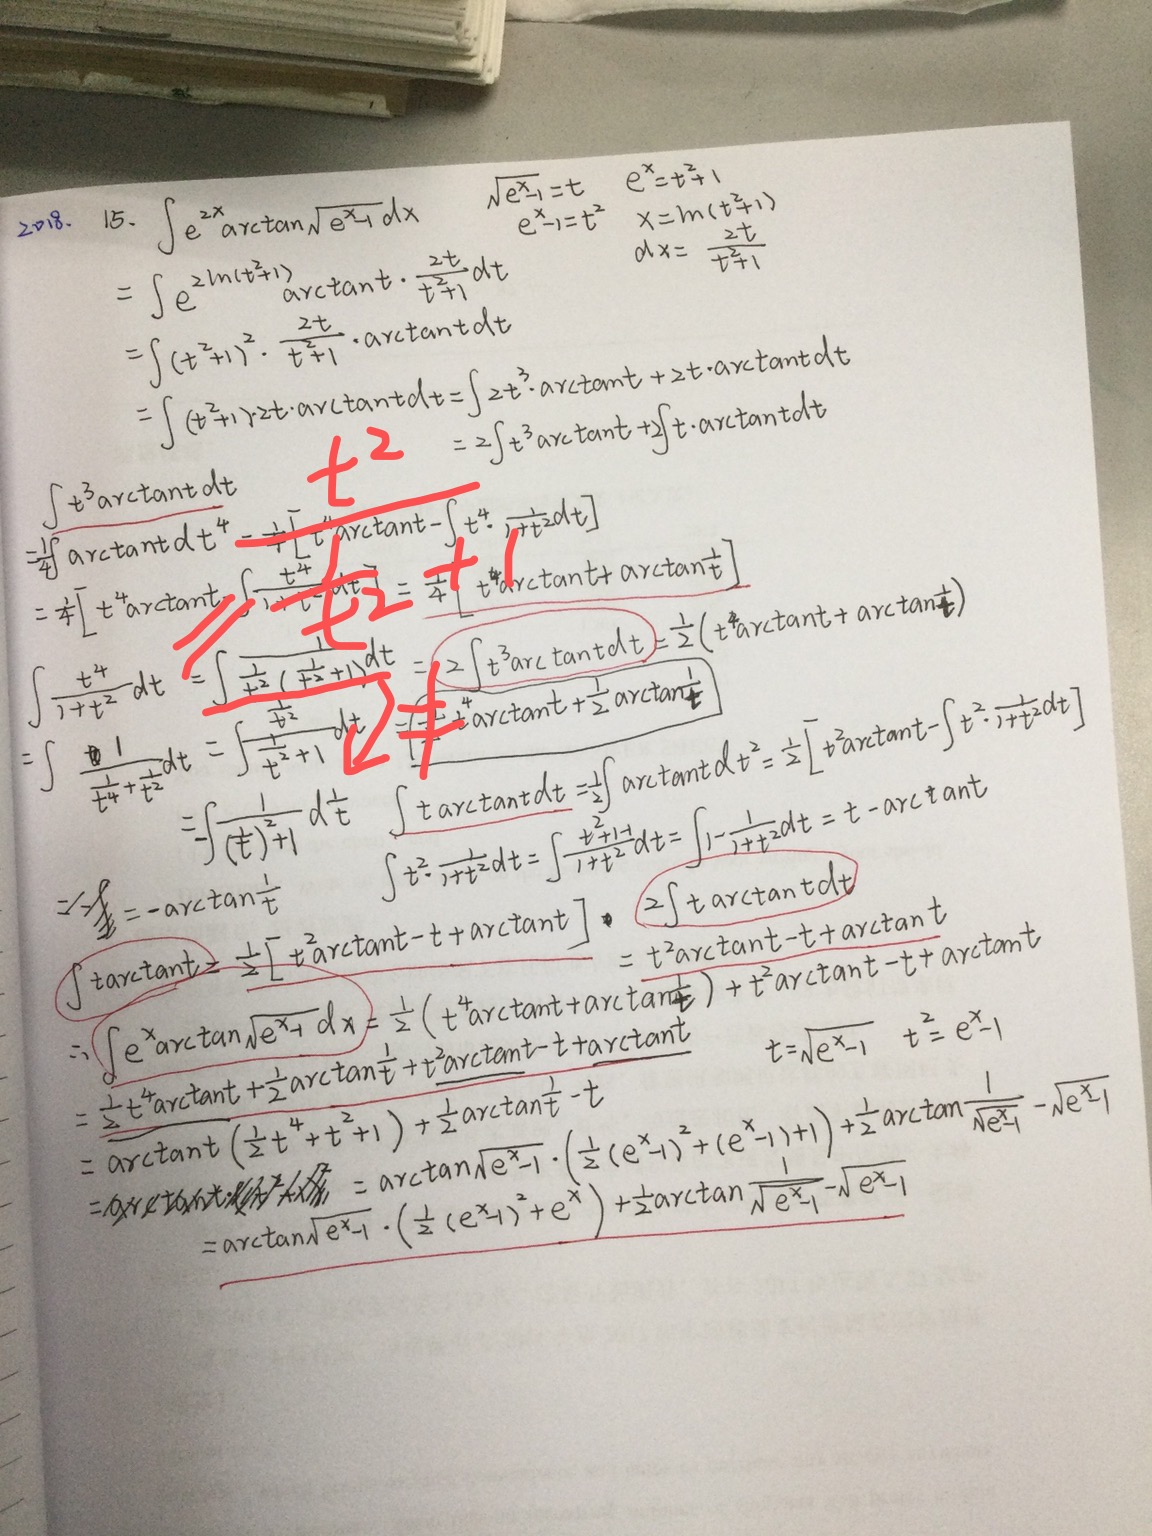 2018. 15. ∫e^{2x}arctan√(e^x-1) dx √(e^x-1)=t e^x=t²+1
e^x-1=t² x=ln(t²+1)
= ∫e^{2ln(t²+1)} arctant · 2t/(t²+1) dt dx= 2t/(t²+1)
=∫(t²+1)² · 2t/(t²+1) · arctantdt
=∫(t²+1)·2t·arctantdt=∫2t³·arctant+2t·arctantdt
=2∫t³arctant+2∫t·arctantdt
t²
∫t³arctantdt
=1/4∫arctantdt⁴ = 1/4[t⁴arctant-∫t⁴·1/(1+t²)dt]
1/t²+1
=1/4[t⁴arctant-∫t⁴/(1+t²)dt] = 1/4[t⁴arctant+arctan1/t]
∫t⁴/(1+t²)dt =∫1/(1/t²(1/t²+1))dt = 2∫t³arctantdt=1/2(t⁴arctant+arctan1/t)
=∫1/(1/t⁴+1/t²)dt =∫(1/t²)/(1/t²+1)dt ≠ =1/2t⁴arctant+1/2arctan1/t
=-∫1/((1/t)²+1)d1/t ∫tarctantdt=1/2∫arctantdt²=1/2[t²arctant-∫t²·1/(1+t²)dt]
∫t²·1/(1+t²)dt=∫(t²+1-1)/(1+t²)dt=∫1-1/(1+t²)dt=t-arctant
=-arctan1/t
∫tarctant=1/2[t²arctant-t+arctant] 2∫tarctantdt
=t²arctant-t+arctant
∴∫e^xarctan√(e^x-1)dx=1/2(t⁴arctant+arctan1/t)+t²arctant-t+arctant
=1/2t⁴arctant+1/2arctan1/t+t²arctant-t+arctant t=√(e^x-1) t²=e^x-1
=arctant(1/2t⁴+t²+1)+1/2arctan1/t-t
= =arctan√(e^x-1)·(1/2(e^x-1)²+(e^x-1)+1)+1/2arctan1/√(e^x-1)-√(e^x-1)
=arctan√(e^x-1)·(1/2(e^x-1)²+e^x)+1/2arctan1/√(e^x-1)-√(e^x-1)